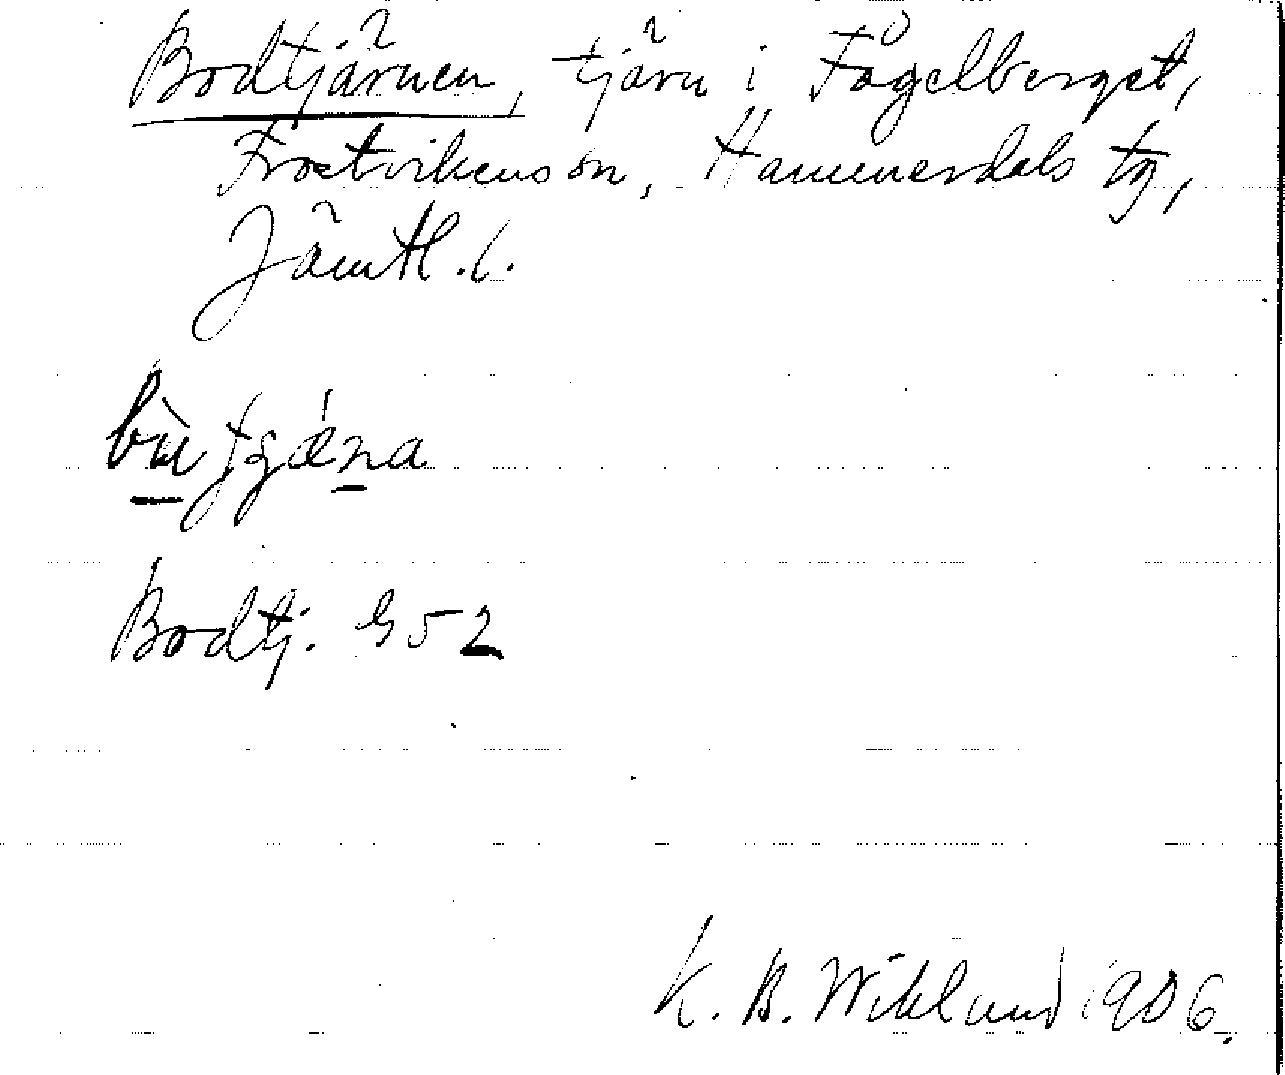 Bodtjärnen, tjärn i Fågelberget,
Frostvikens sn, Hammerdals tg,
Jämtl. l.
Bodtj. G52
K. B. Wiklund 1906.